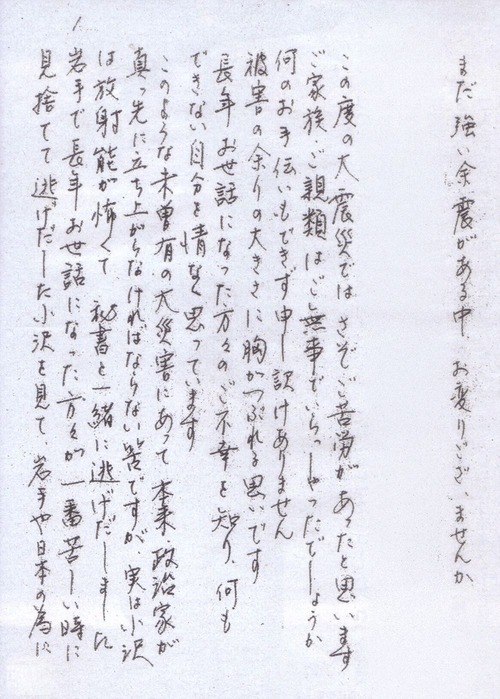 まだ強い余震がある中 お変りございませんか
この度の大震災では さぞご苦労があったと思います
ご家族・ご親類はご無事でいらっしゃったでしょうか
何のお手伝いもできず申し訳ありません
被害の余りの大きさに胸がつぶれる思いです
長年お世話になった方々のご不幸を知り、何も
できない自分を情なく思っています
このような未曽有の大災害にあって本来、政治家が
真っ先に立ち上がらなければならない筈ですが、実は小沢
は放射能が怖くて秘書と一緒に逃げだしました
岩手で長年お世話になった方々が一番苦しい時に
見捨てて逃げだした小沢を見て、岩手や日本の為に
1.